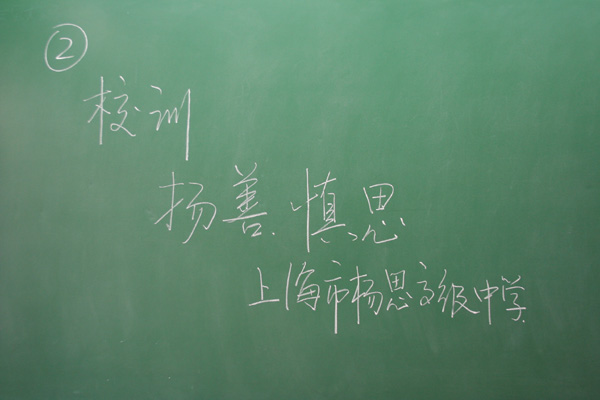 ②
校训
扬善 慎思
上海市杨思高级中学